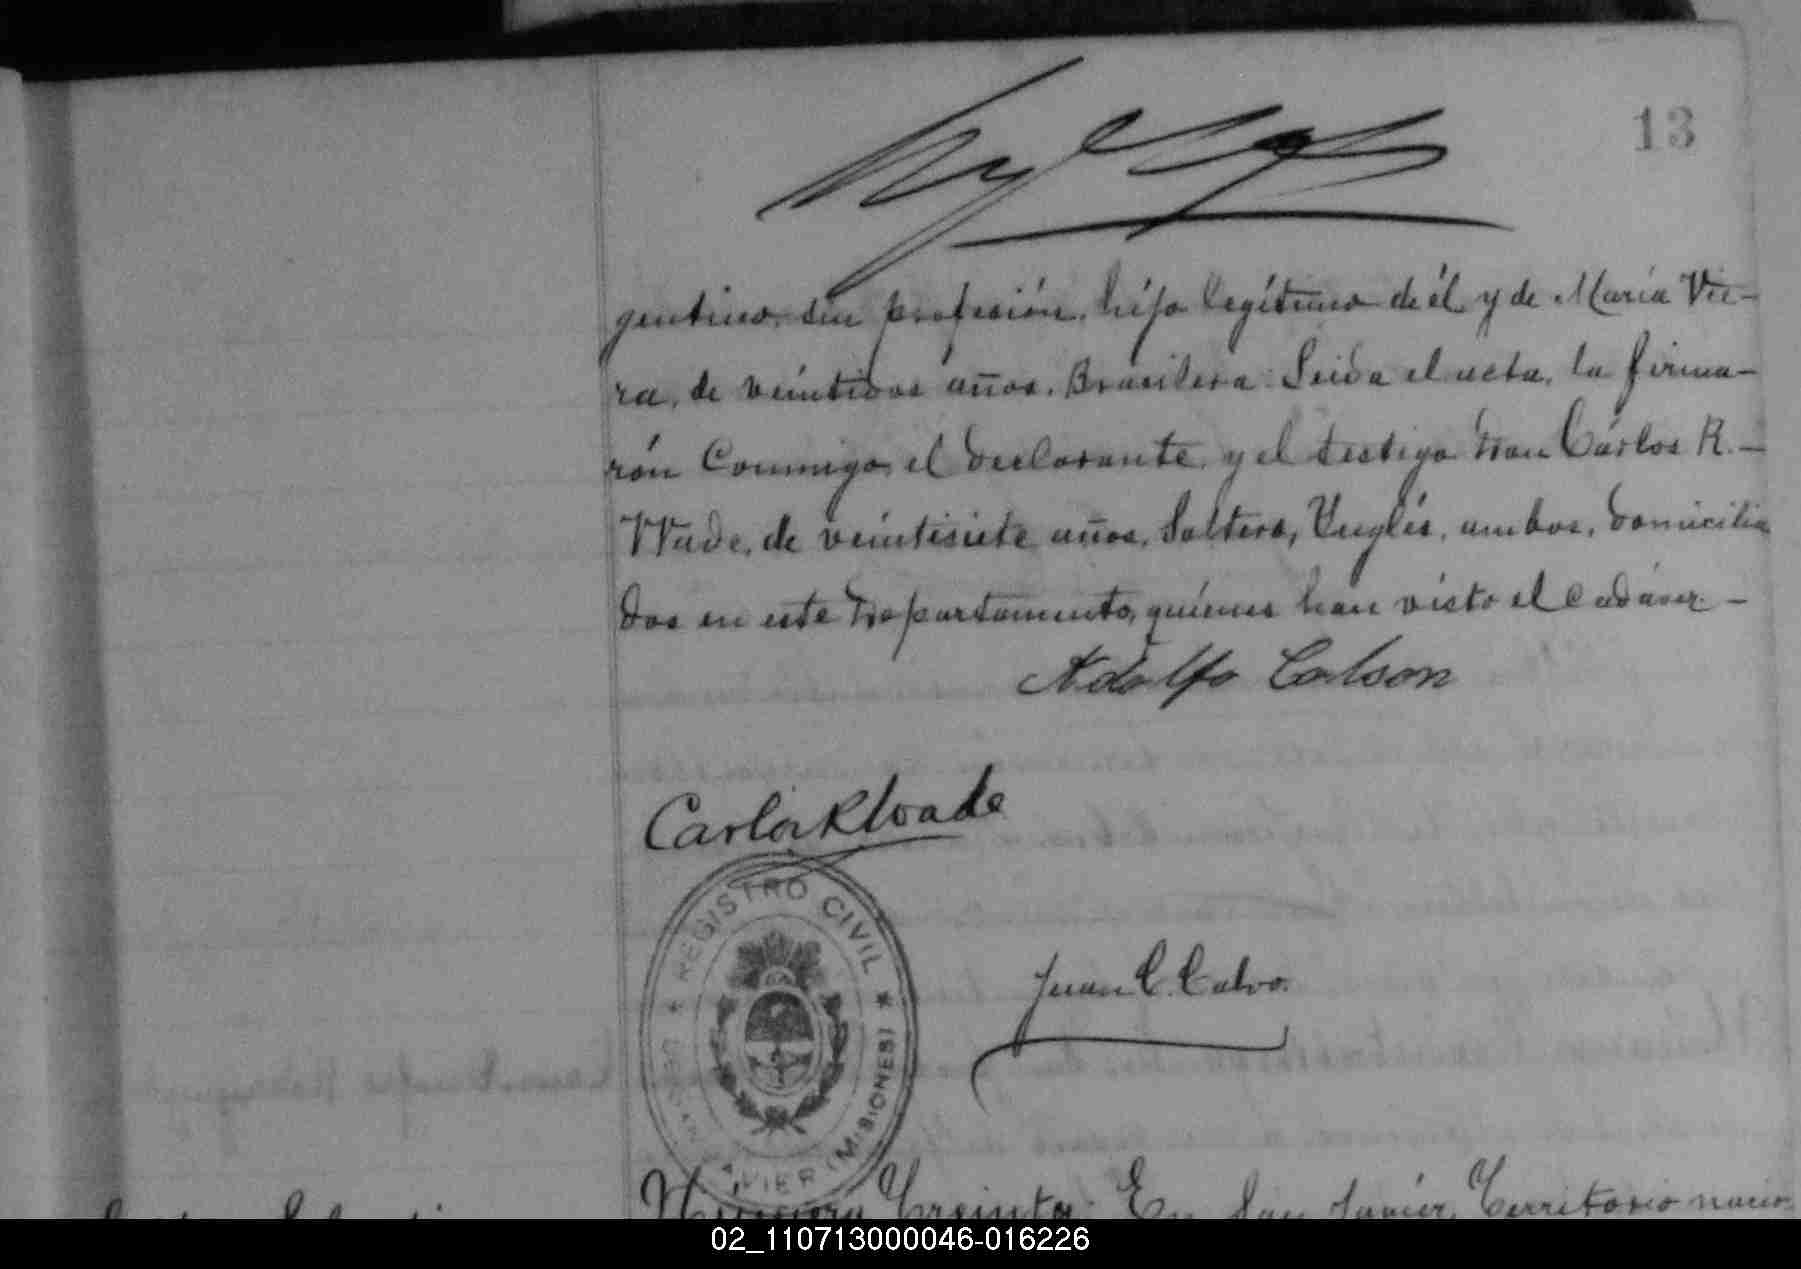 13
gentino, sin profesión, hijo legítimo de él y de María Vie-
ra, de veintidos años, Brasilera. Leida el acta, la firma-
rón Conmigo, el declarante, y el testigo Don Cárlos R. -
Wade, de veintisiete años, Soltero, Ynglés, ambos, domicilia
dos en este Departamento, quíenes han visto el cadáver. -
Adolfo Colson
Carlos R Wade
REGISTRO CIVIL
DE SAN JAVIER (MISIONES)
Juan C. Calvo.
Número Treinta: En San Javier, Territorio nacio
02_110713000046-016226